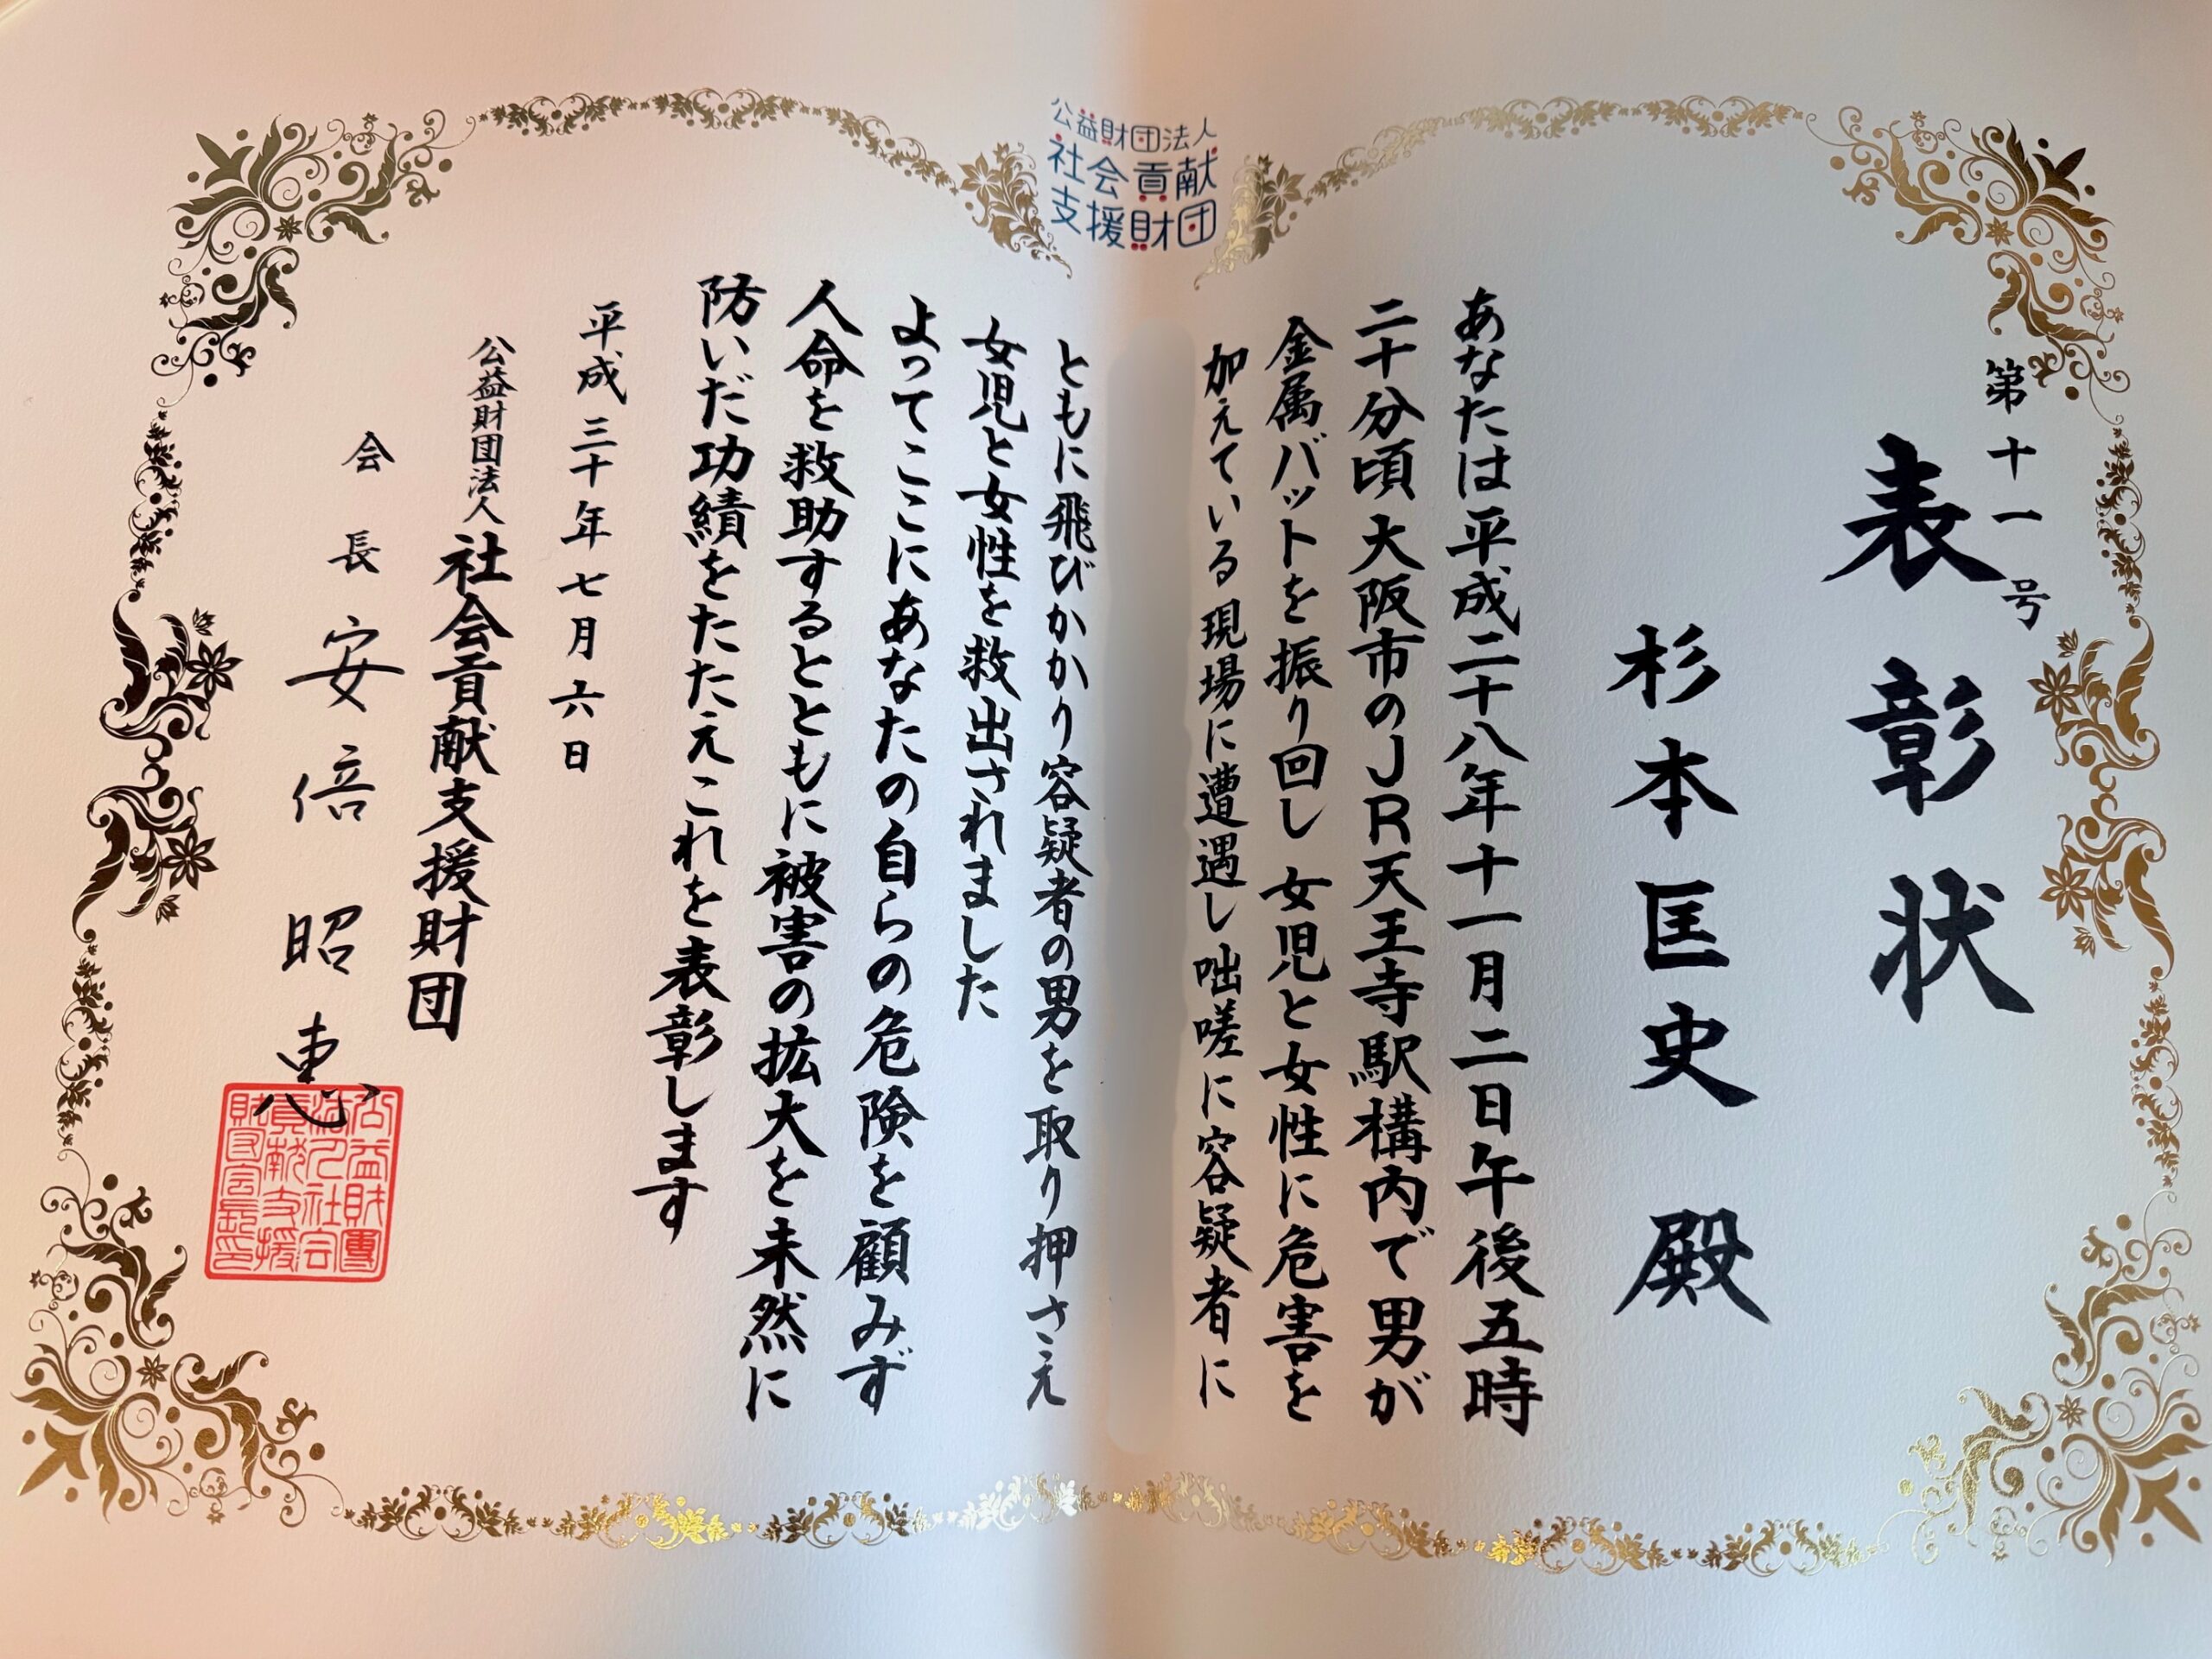 公益財団法人
社会貢献
支援財団
第十一号
表彰状
杉本匡史 殿
あなたは平成二十八年十一月二日午後五時
二十分頃大阪市のJR天王寺駅構内で男が
金属バットを振り回し女児と女性に危害を
加えている現場に遭遇し咄嗟に容疑者に
ともに飛びかかり容疑者の男を取り押さえ
女児と女性を救出されました
よってここにあなたの自らの危険を顧みず
人命を救助するとともに被害の拡大を未然に
防いだ功績をたたえこれを表彰します
平成三十年七月六日
公益財団法人 社会貢献支援財団
会長 安倍昭恵